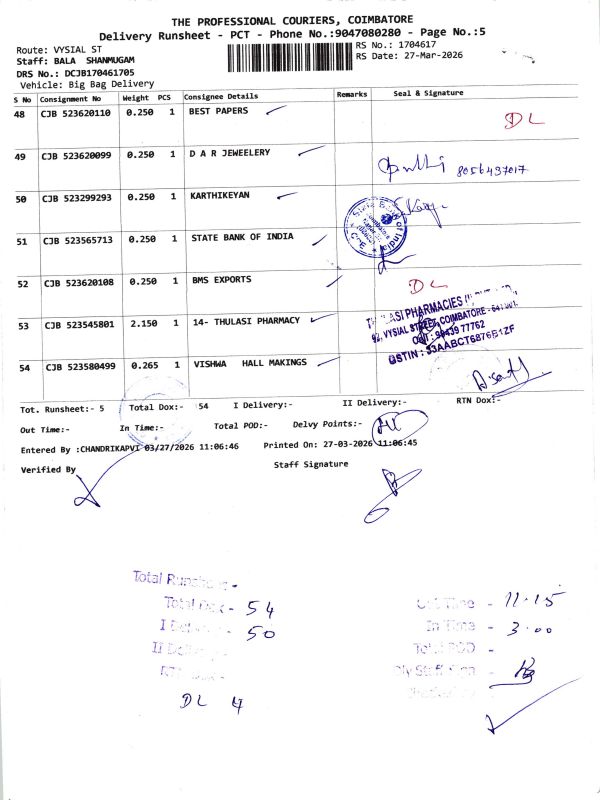 THE PROFESSIONAL COURIERS, COIMBATORE
Delivery Runsheet - PCT - Phone No.:9047080280 - Page No.:5
Route: VYSIAL ST
RS No.: 1704617
Staff: BALA SHANMUGAM
RS Date: 27-Mar-2026
DRS No.: DCJB170461705
Vehicle: Big Bag Delivery
S No Consignment No Weight PCS Consignee Details Remarks Seal & Signature
48 CJB 523620110 0.250 1 BEST PAPERS DL
49 CJB 523620099 0.250 1 D A R JEWEELERY 8056437017
50 CJB 523299293 0.250 1 KARTHIKEYAN
State Bank of India
51 CJB 523565713 0.250 1 STATE BANK OF INDIA
52 CJB 523620108 0.250 1 BMS EXPORTS DL
53 CJB 523545801 2.150 1 14- THULASI PHARMACY
THULASI PHARMACIES
92, VYSIAL STREET, COIMBATORE - 641 001.
GSTIN : 33AABCT6876B1ZF
54 CJB 523580499 0.265 1 VISHWA HALL MAKINGS
Tot. Runsheet:- 5 Total Dox:- 54 I Delivery:- II Delivery:- RTN Dox:-
Out Time:- In Time:- Total POD:- Delvy Points:-
Entered By :CHANDRIKAPVI 03/27/2026 11:06:46 Printed On: 27-03-2026 11:06:45
Verified By Staff Signature
Total Runsheet -
Total Dox - 54
I Delivery - 50
II Delivery -
DL 4
Out Time - 11.15
In Time - 3.00
Total POD -
Dly Staff Sign -